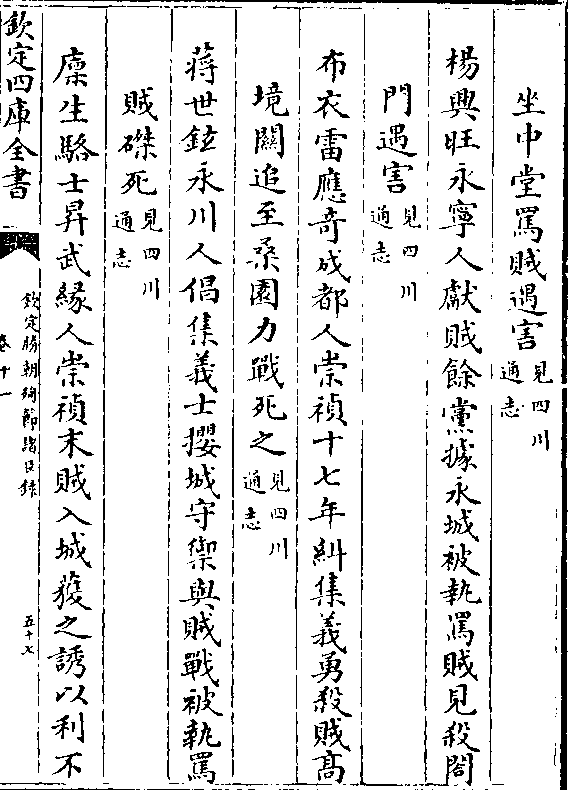 坐中堂罵賊遇害見四川通志
楊興旺永寧人獻賊餘黨據永城被執罵賊見殺閤
門遇害見四川通志
布衣雷應奇成都人崇禎十七年糾集義勇殺賊髙
境關追至桑園力戰死之見四川通志
蔣世鉉永川人倡集義士攖城守禦與賊戰被執罵
賊磔死見四川通志
廩生駱士昇武緣人崇禎末賊入城獲之誘以利不
欽定四庫全書
欽定勝朝殉節諸臣錄
卷十一
五十七